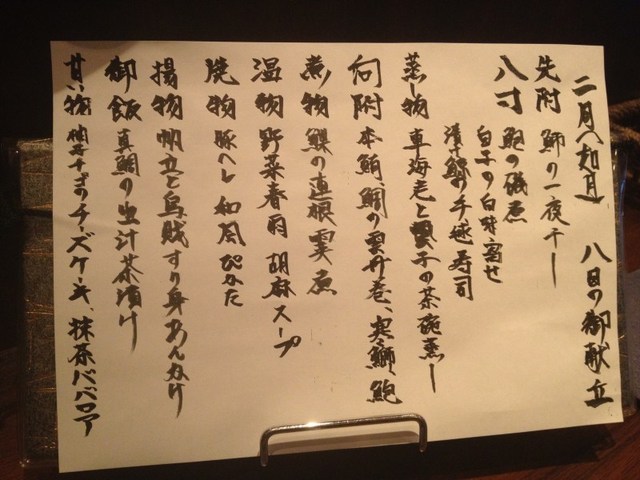 二月(如月) 八日の御献立
先附 鰤の一夜干し
八寸 鮑の磯煮
白子の白味噌寄せ
漬け鰺の手毬寿司
蒸し物 車海老と雲子の茶碗蒸し
向附 本鮪、鯛の雲丹巻、寒鰤、鮑
煮物 鰈の蓮根 煮
温物 野菜春雨 胡麻スープ
焼物 豚ヘレ 和風ぴかた
揚物 帆立と烏賊すり身あんかけ
御飯 真鯛の出汁茶漬け
甘い物 チーズケーキ、抹茶ババロア